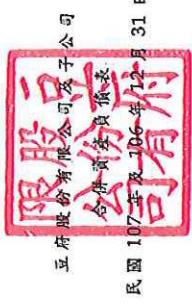 豆府股份有限公司及子公司
合併資產負債表
民國 107 年及 106 年 12 月 31 日